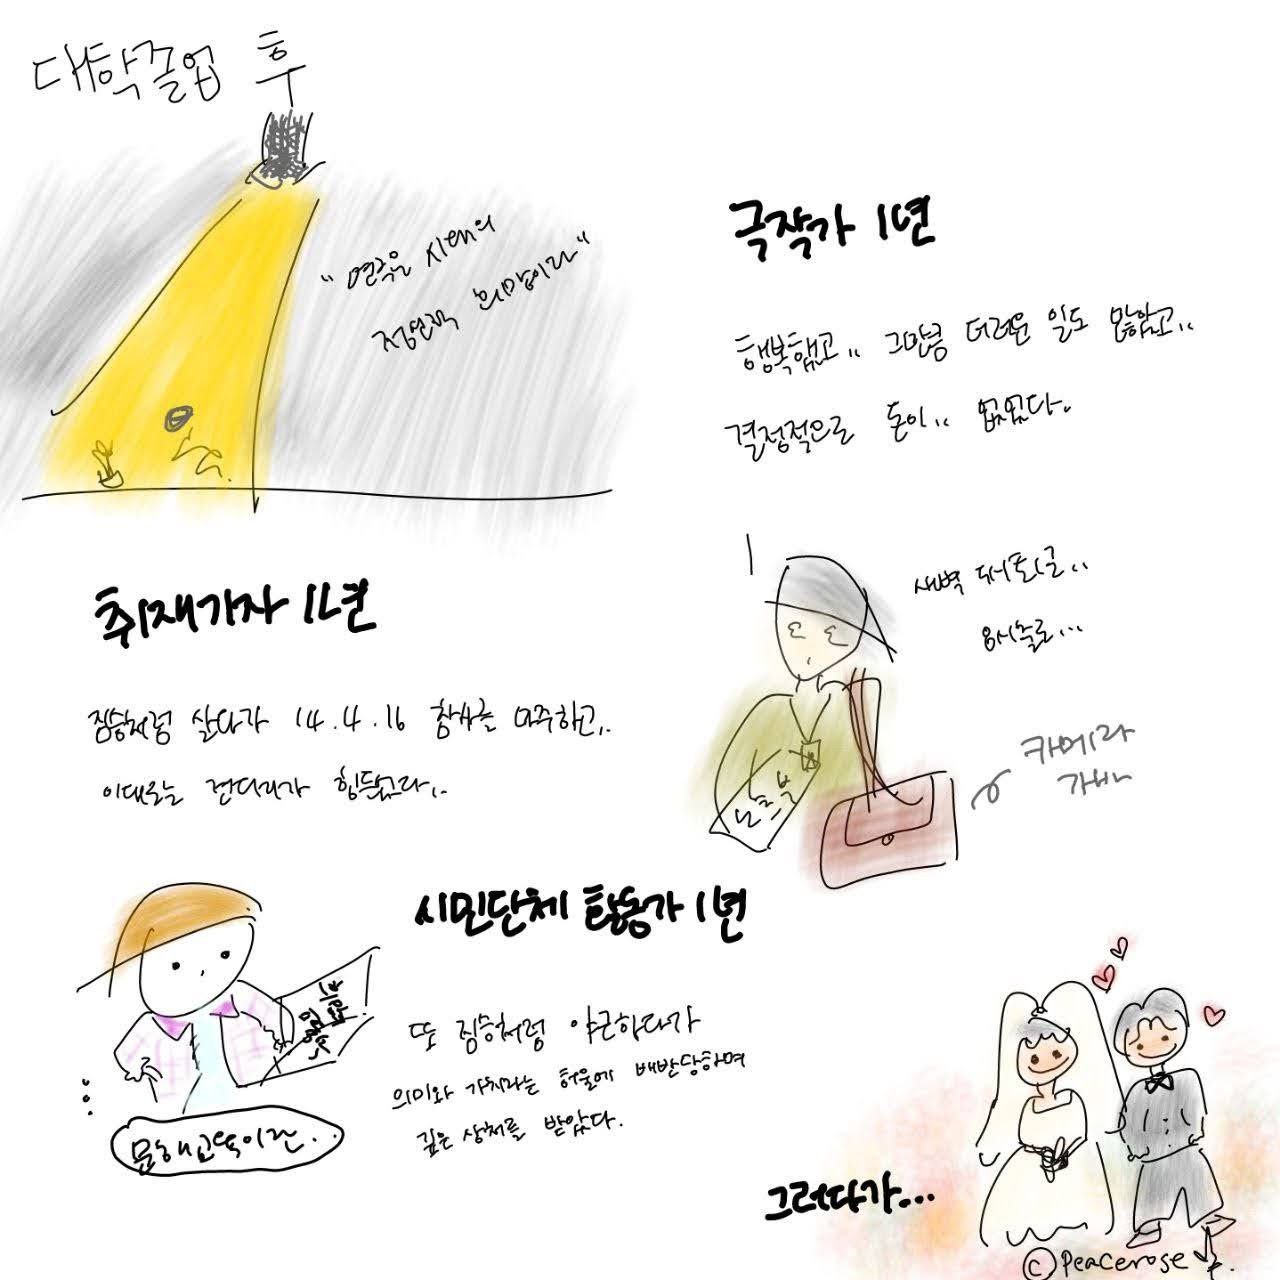 대학졸업 후
"연극은 시대의
정신적 희망이라"
극작가 1년
행복했고.. 그만큼 더러운 일도 많았고..
결정적으로 돈이.. 없었다.
취재기자 1년
짐승처럼 살다가 14.4.16 참사를 마주하고..
이대로는 견디기가 힘들더라..
새벽
카메라
가방
노트북
시민단체 활동가 1년
또 짐승처럼 야근하다가
의미와 가치라는 허울에 배반당하며
깊은 상처를 받았다.
문해교육이란..
그러다가...
©Peacerose